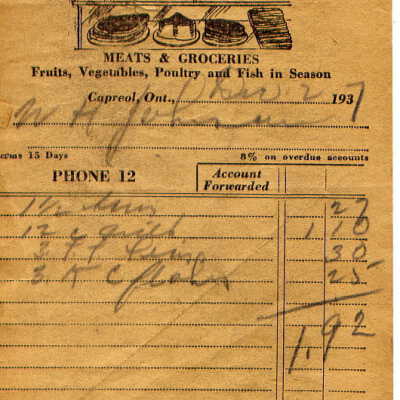 MEATS & GROCERIES
Fruits, Vegetables, Poultry and Fish in Season
Capreol, Ont., Dec 2 1937
W H Johnson
Terms 15 Days 8% on overdue accounts
PHONE 12 Account Forwarded
27
12 1 10
3 30
3 K C 25
1.92